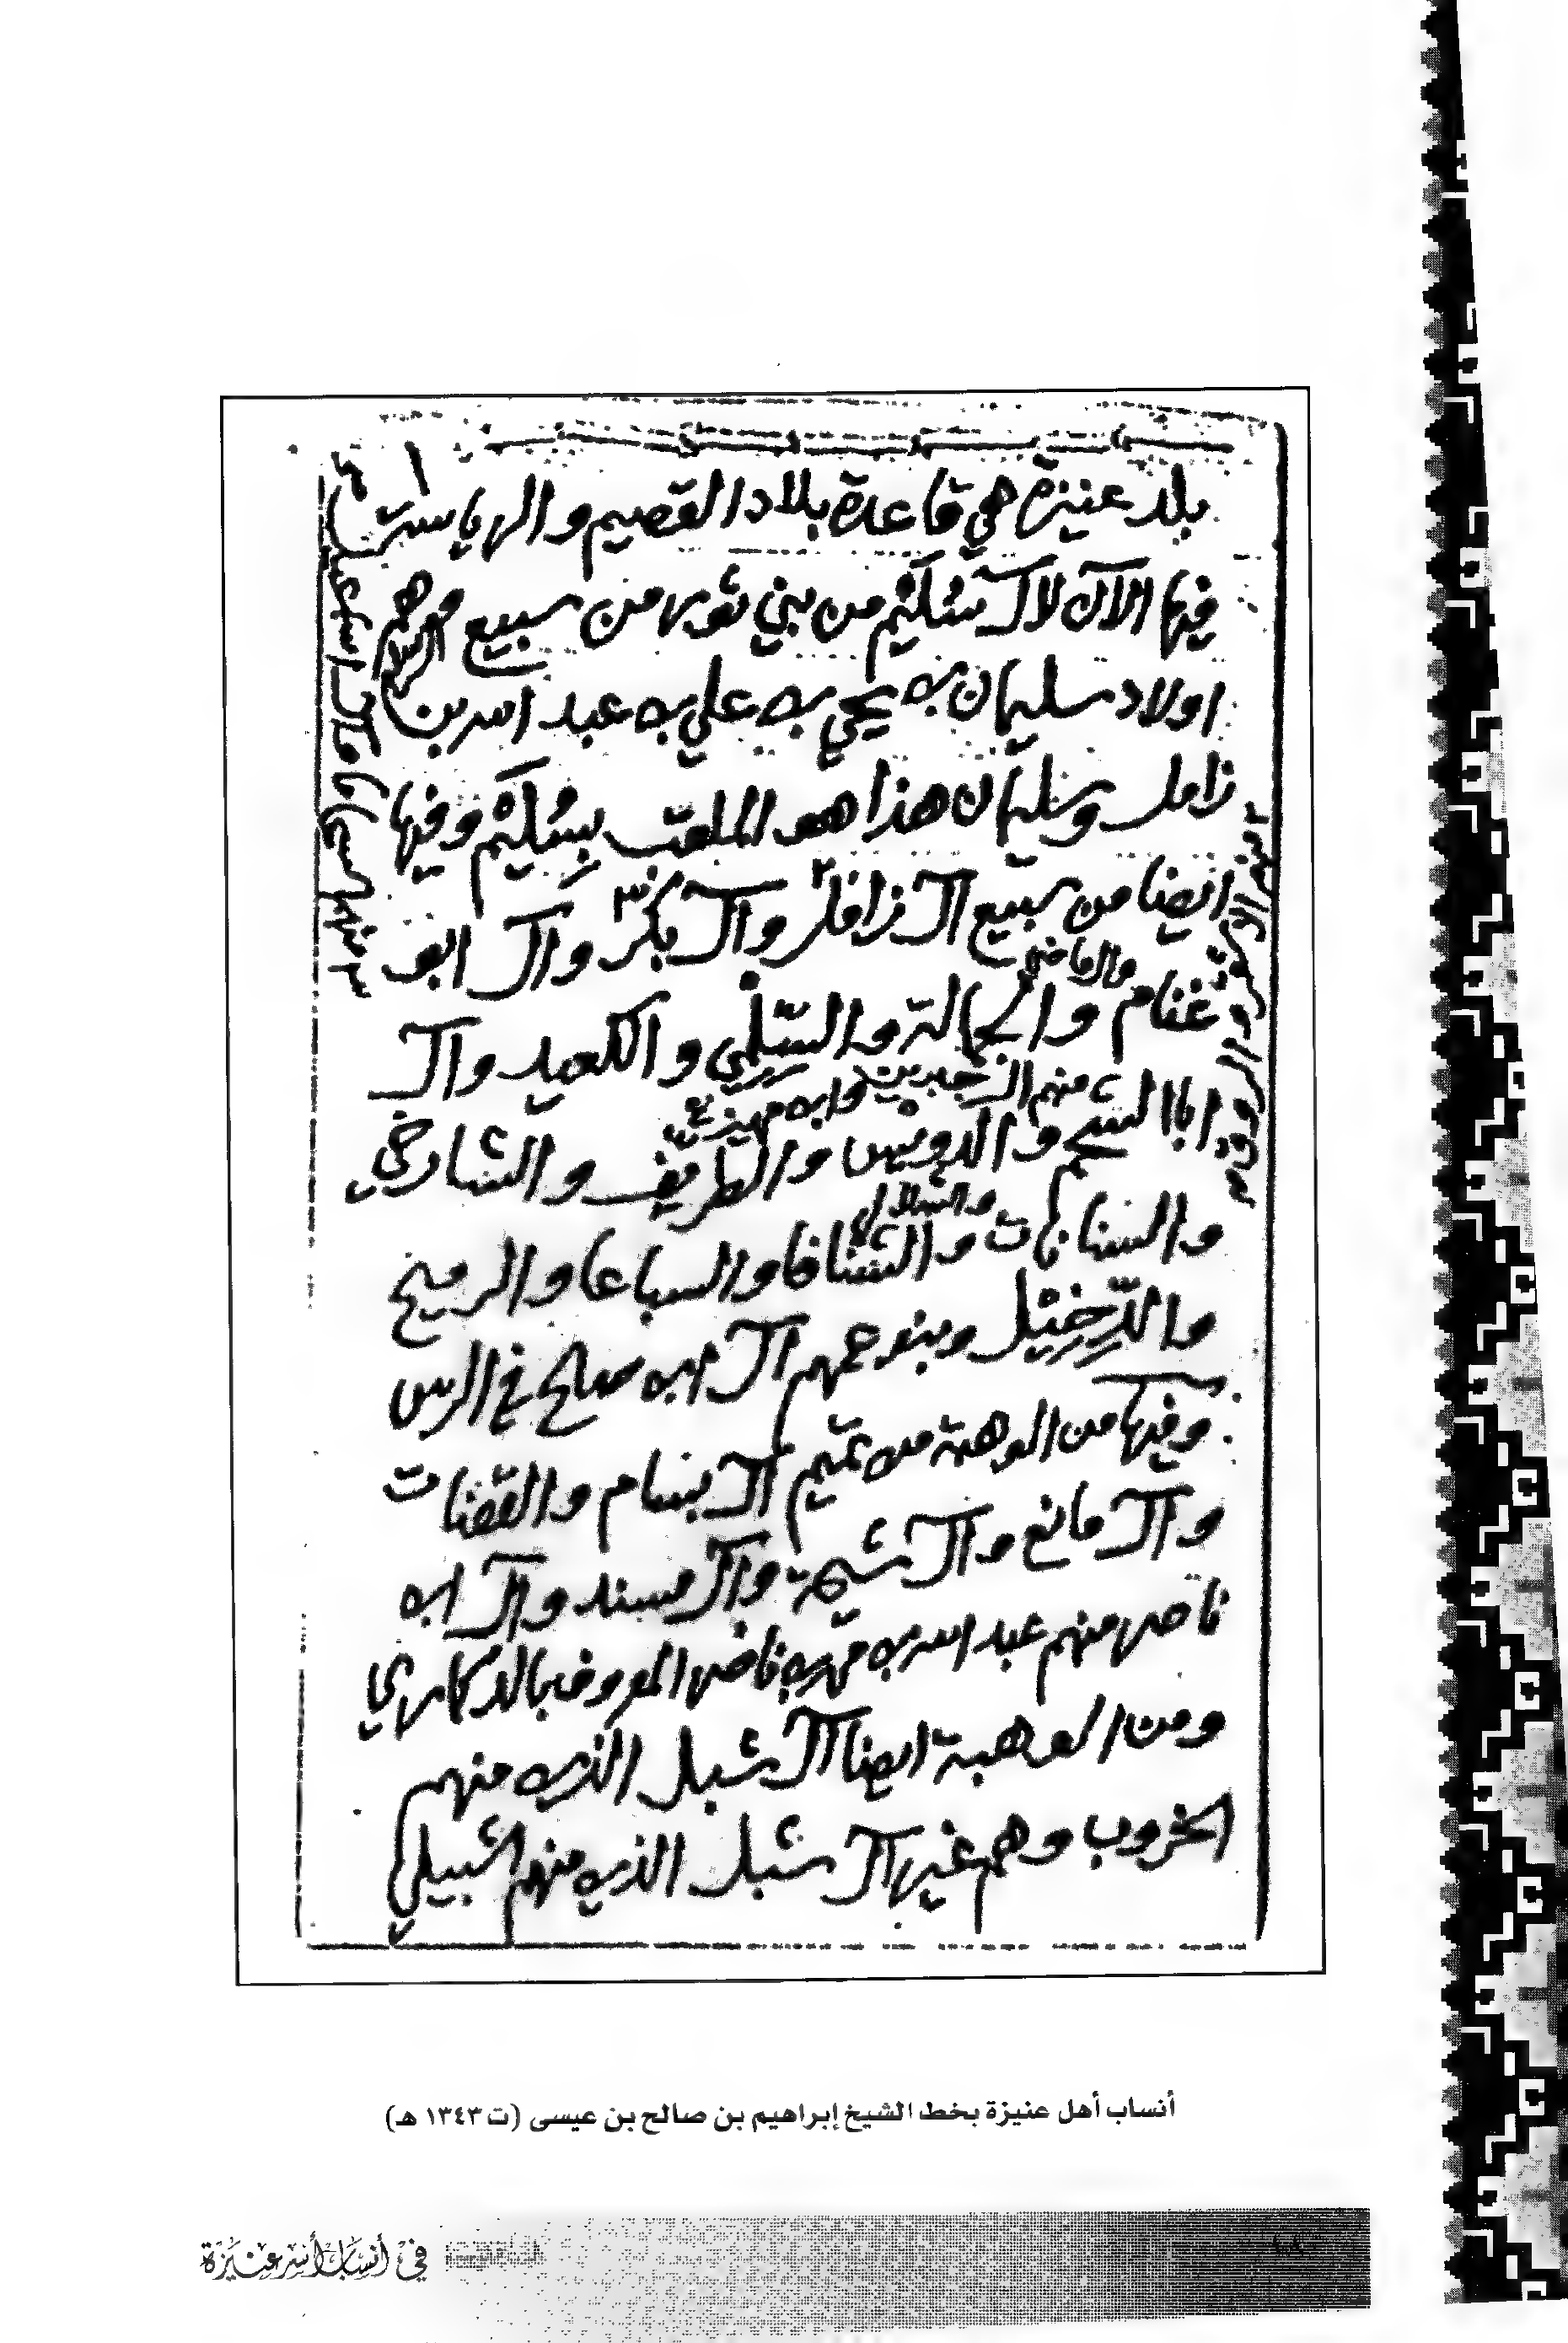 بلد عنيزة هي قاعدة بلاد القصيم والرياسة
فيها الآن لآل سُلَيْم من بني ثور من سبيع وهم
اولاد سليمان بن يحي بن علي بن عبد الله بن
زامل وسليمان هذا هو الملقب بِسُلَيْم وفيها
ايضا من سبيع آل زامل ٢ وآل بكر ٣ وآل ابو
والقاضي
غنام والجمالة والسِّلِمي والكعيد وآل
منهم آل جبرين وابن مهيزع
ابا الشحم والدويس والطريف والشارخي
والشلالي
والسنانات والشنافا والسباعا والرميح
والدِّخِيْل وبنو عمهم آل ابن صالح في الرس
وفيها من الوهبة من تميم آل بسام والقضات
وآل مانع وآل شيحة وآل مسند وآل ابن
ناصر منهم عبد الله بن محمد بن ناصر المعروف بالدكاري
ومن الوهبة ايضا آل شبل الذين منهم
الخروب وهم غير آل شبل الذين منهم الشبيلي
أنساب أهل عنيزة بخط الشيخ إبراهيم بن صالح بن عيسى (ت ١٣٤٣ هـ)
في أنساب أسر عنيزة